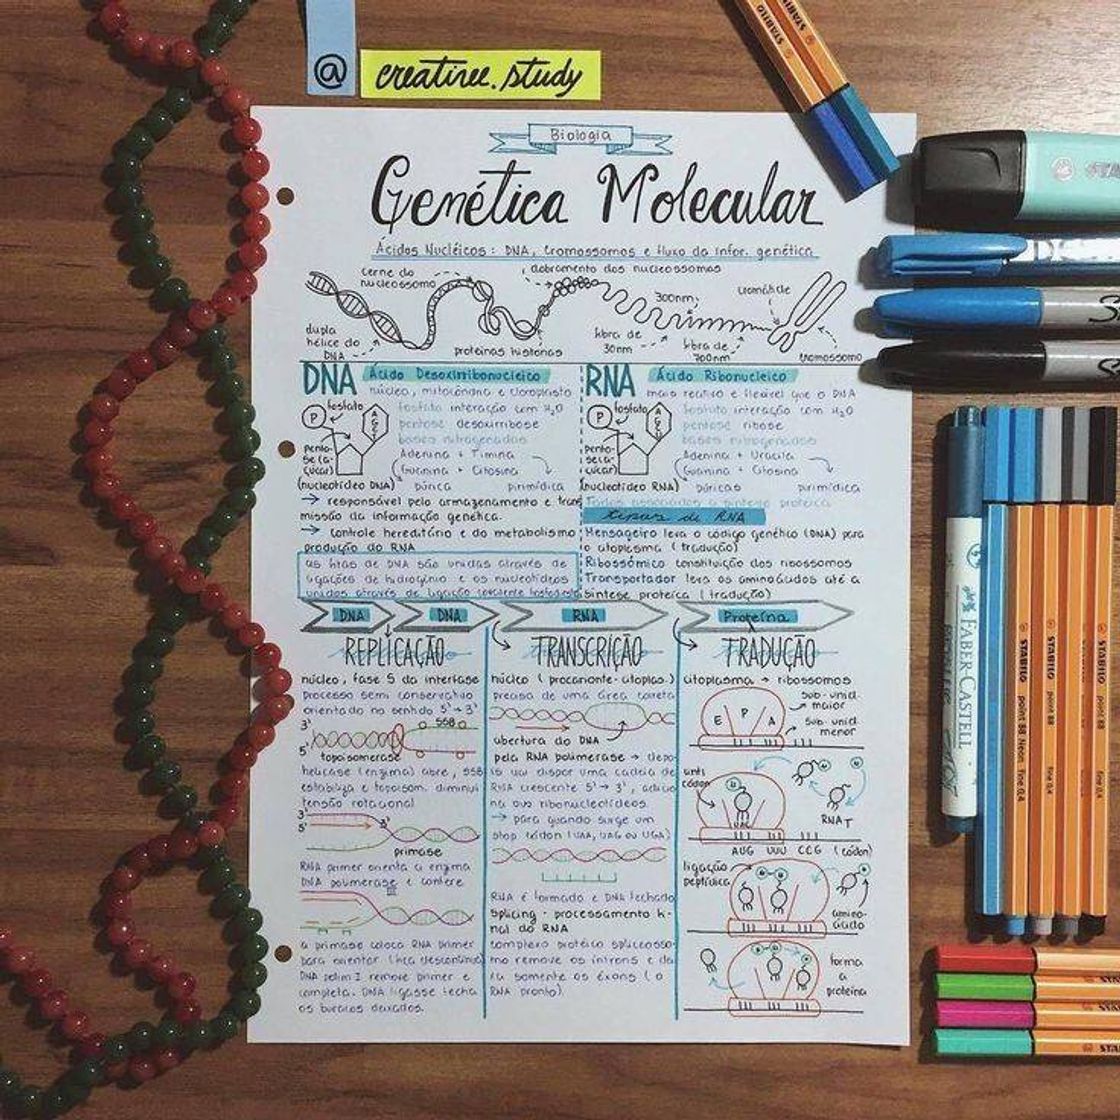 @ creatinee.study
Biologia
Genética Molecular
Ácidos Nucléicos: DNA, Cromossomos e fluxo da infor. genética
cerne do nucleossomo
dobramento dos nucleossomos
300nm
cromátide
dupla hélice do DNA
proteínas histonas
fibra de 30nm
fibra de 700nm
cromossomo
DNA Ácido Desoxirribonucleico
núcleo, mitocôndria e cloroplasto
P fosfato
A G C T
pento-
se (a-
çúcar)
fosfato interação com H₂O
pentose desoxirribose
bases nitrogenadas
Adenina + Timina
Guanina + Citosina
(nucleotídeo DNA) púrica pirimídica
→ responsável pelo armazenamento e trans
missão da informação genética.
→ controle hereditário e do metabolismo
produção do RNA
as fitas de DNA são unidas através de
ligações de hidrogênio e os nucleotídeos
unidos através de ligação covalente
RNA Ácido Ribonucleico
mais reativo e flexível que o DNA
P fosfato
pento-
se (a-
çúcar)
fosfato interação com H₂O
pentose ribose
bases nitrogenadas
Adenina + Uracila
Guanina + Citosina
(nucleotídeo RNA) púricas pirimídica
Todos associados a síntese proteica
tipos de RNA
Mensageiro leva o código genético (DNA) para
o citoplasma (tradução)
Ribossômico constituição dos ribossomos
Transportador leva os aminoácidos até a
síntese proteica (tradução)
DNA DNA RNA Proteína
REPLICAÇÃO
núcleo, fase S da interfase
processo semi conservativo
orientado no sentido 5' → 3'
3' SSB
5' topoisomerase
helicase (enzima) abre, SSB
estabiliza e topoisom. diminui
tensão rotacional
3' 3'
5'
primase
RNA primer orienta a enzima
DNA polimerase III e confere
a primase coloca RNA primer
para orientar (fita descontínua)
DNA polim I remove primer e
completa. DNA ligase fecha
os buracos deixados.
TRANSCRIÇÃO
núcleo (procarionte-citoplas.)
precisa de uma área correta
abertura do DNA
pela RNA polimerase → depo-
is vai dispor uma cadeia de
RNA crescente 5' → 3', adicio
na ovo ribonucleotídeos
→ para quando surge um
stop códon (UAA, UAG ou UGA)
RNA é formado e DNA fechado
splicing - processamento fi-
nal do RNA
complexo proteico spliceosso-
mo remove os íntrons e dei
xa somente os éxons (o
RNA pronto).
TRADUÇÃO
citoplasma → ribossomos
E P A
sub-unid. maior
sub unid menor
anti códon
UAC
RNA T
AUG UUU CCG (códon)
ligação peptídica
amino-
ácido
forma
a
proteína
STABILO
STABILO
FABER-CASTELL
STABILO point 88 Neon fine 0,4
STABILO point 88 fine 0,4
STABILO point 88